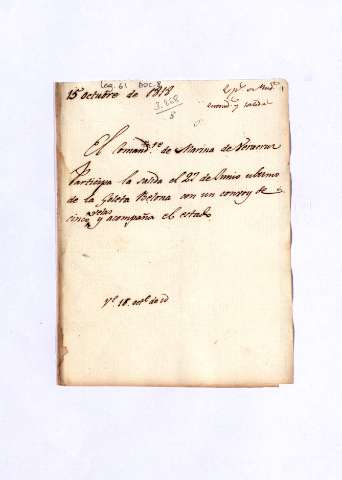 Leg. 61 Doc. 8
15 octubre de 1818
3.868
8
entrad.s y salidas
El Comand.te de Marina de Veracruz
Participa la salida el 27 de Junio ultimo
de la Goleta Belona con un convoy de
cinco velas y acompaña el estado
18 oct.e de id